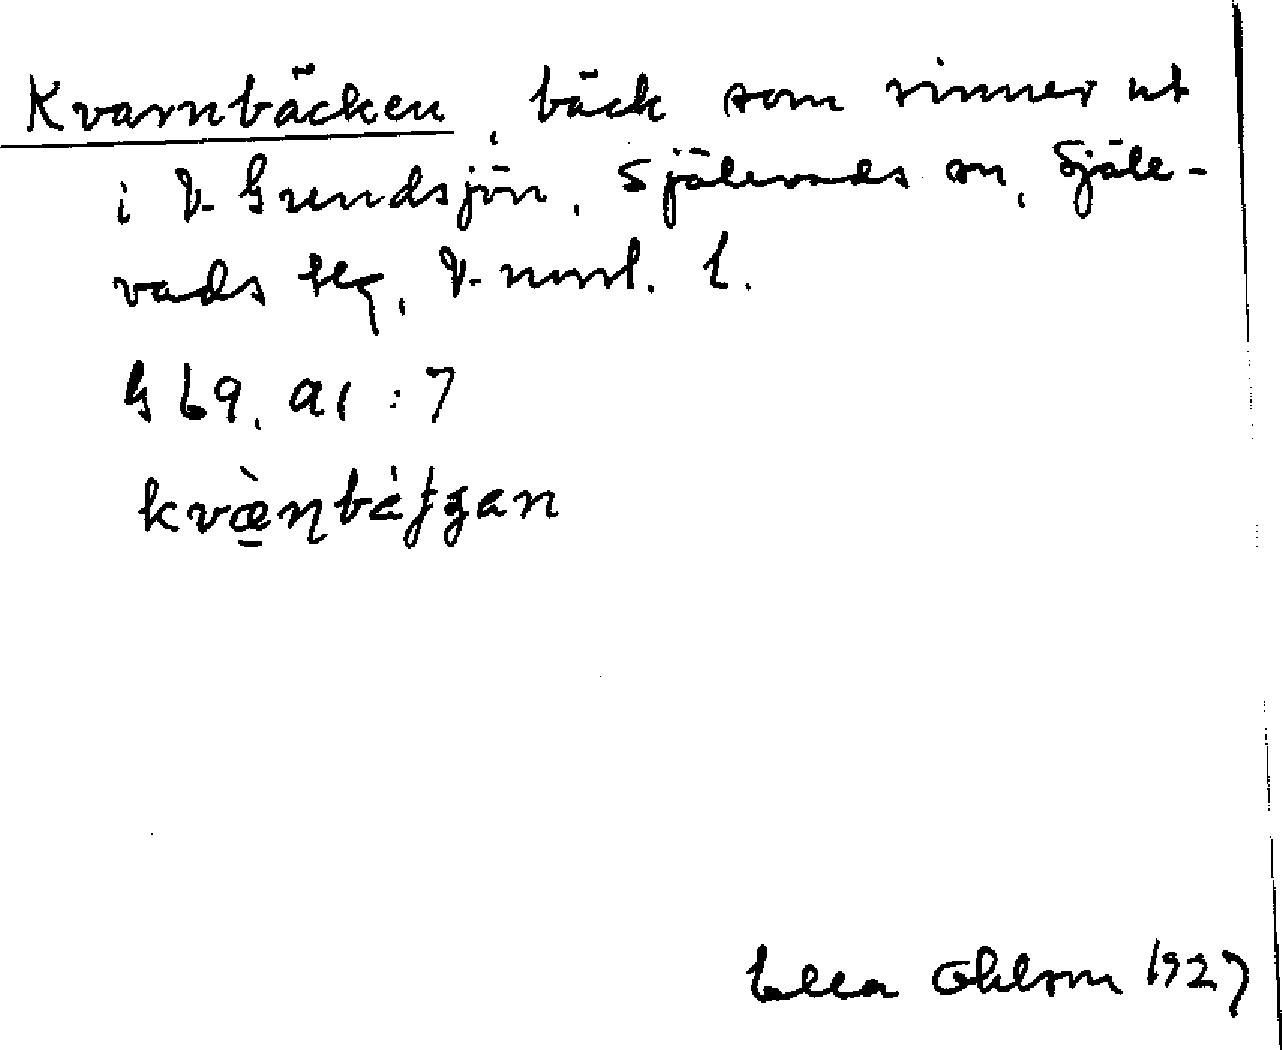 Kvarnbäcken, bäck som rinner ut
i V. Grundsjön, Själevads sn, Själe-
vads tlg, V-norrl. l.
G 69, a1 : 7
Ella Ohlson 1927